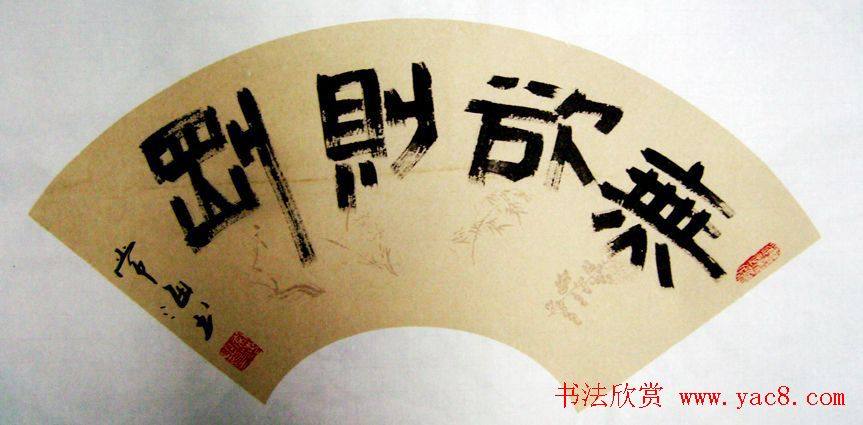 無欲則剛
书法欣赏 www.yac8.com